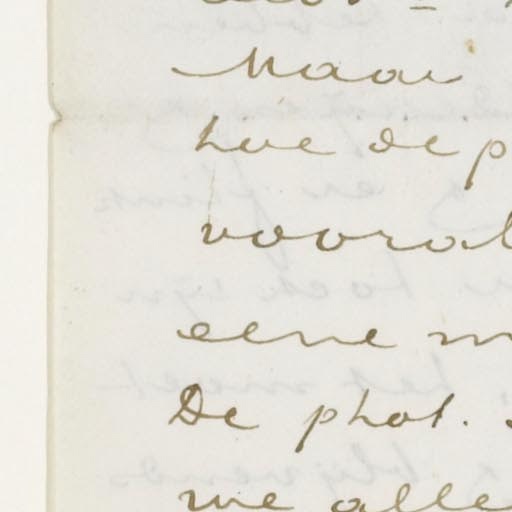 Maar
hoe de p
vooral
eene m
De phot.
me alle